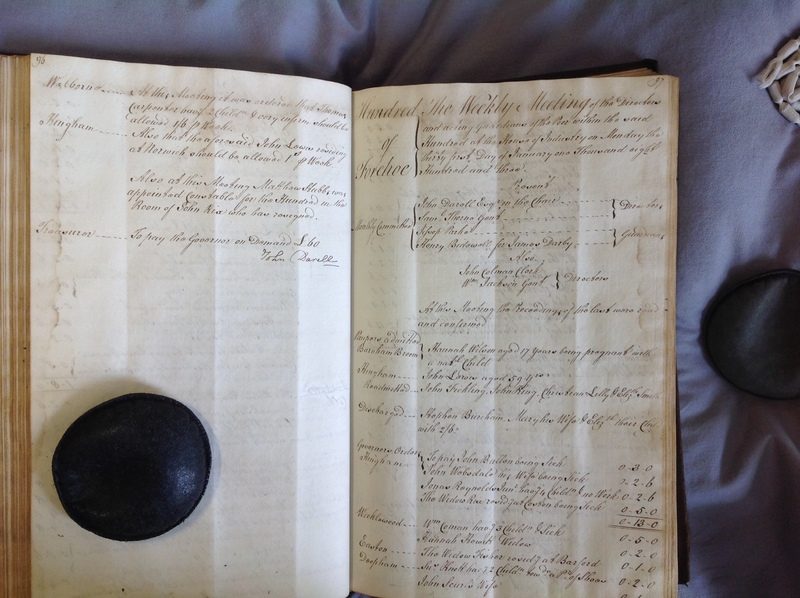 96
Welborne At this Meeting it was ordered that Thomas
Carpenter having 2 Childn & very infirm should be
allowed 1/6 p Week.
Hingham Also that the aforesaid John Lowe residing
at Norwich should be allowed 1s p Week.
Also at this Meeting Matthew Stubbs was
appointed Constable for the Hundred in the
Room of John Rix who has resigned.
Treasurer To pay the Governor on Demand £60
John Darell
97
Hundred of Forehoe
The Weekly Meeting of the Directors
and acting Guardians of the Poor within the said
Hundred at the House of Industry on Monday the
thirty first Day of January one Thousand eight
Hundred and Three.
Present
Weekly Committee
John Darell Esqr in the Chair
Saml Thorne Gent Directors
Jessop Parke
Henry Bidewell for James Darby Guardians
Also
John Colman Clerk
Wm Jackson Gent Directors
At this Meeting the Proceedings of the last were read
and confirmed
Paupers admitted
Barnham Broom Hannah Wilson aged 17 Years being pregnant with
a natl Child
Hingham John Lowe aged 59 Yrs
Readmitted John Tickling, John King, Christian Lilly & Eliz
Discharged Stephen Burcham, Mary his Wife & Elizth their
with 2/6
Governors Orders
Hingham To pay John Ballon being Sick 0-3-0
John Wobsdale his Wife being Sick 2-6
Jonas Reynolds Junr havg 4 Childn & no Work 0-2-6
The Widow residg at Coston being Sick 0-5-0
0-13-0
Wicklewood Wm Coman havg 3 Childn & Sick 0-5-0
Hannah Howett Widow 0-2-0
Easton The Widow Fisher residg at Barford 0-1-0
Deopham Jas Knott havg 2 Childn towds a Pr of Shoes 0-2-0
John Wife